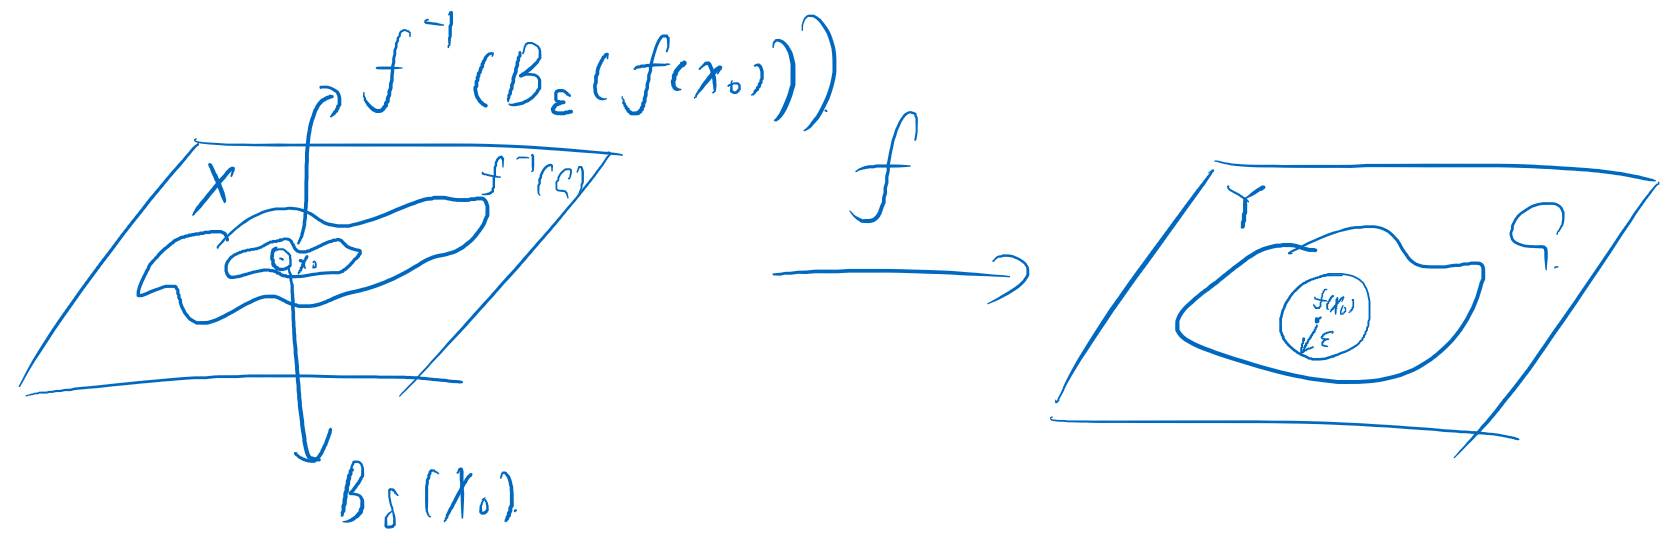 f⁻¹(B_ε(f(x₀)))
X
f⁻¹(G)
x₀
B_δ(x₀).
f
Y
G.
f(x₀)
ε